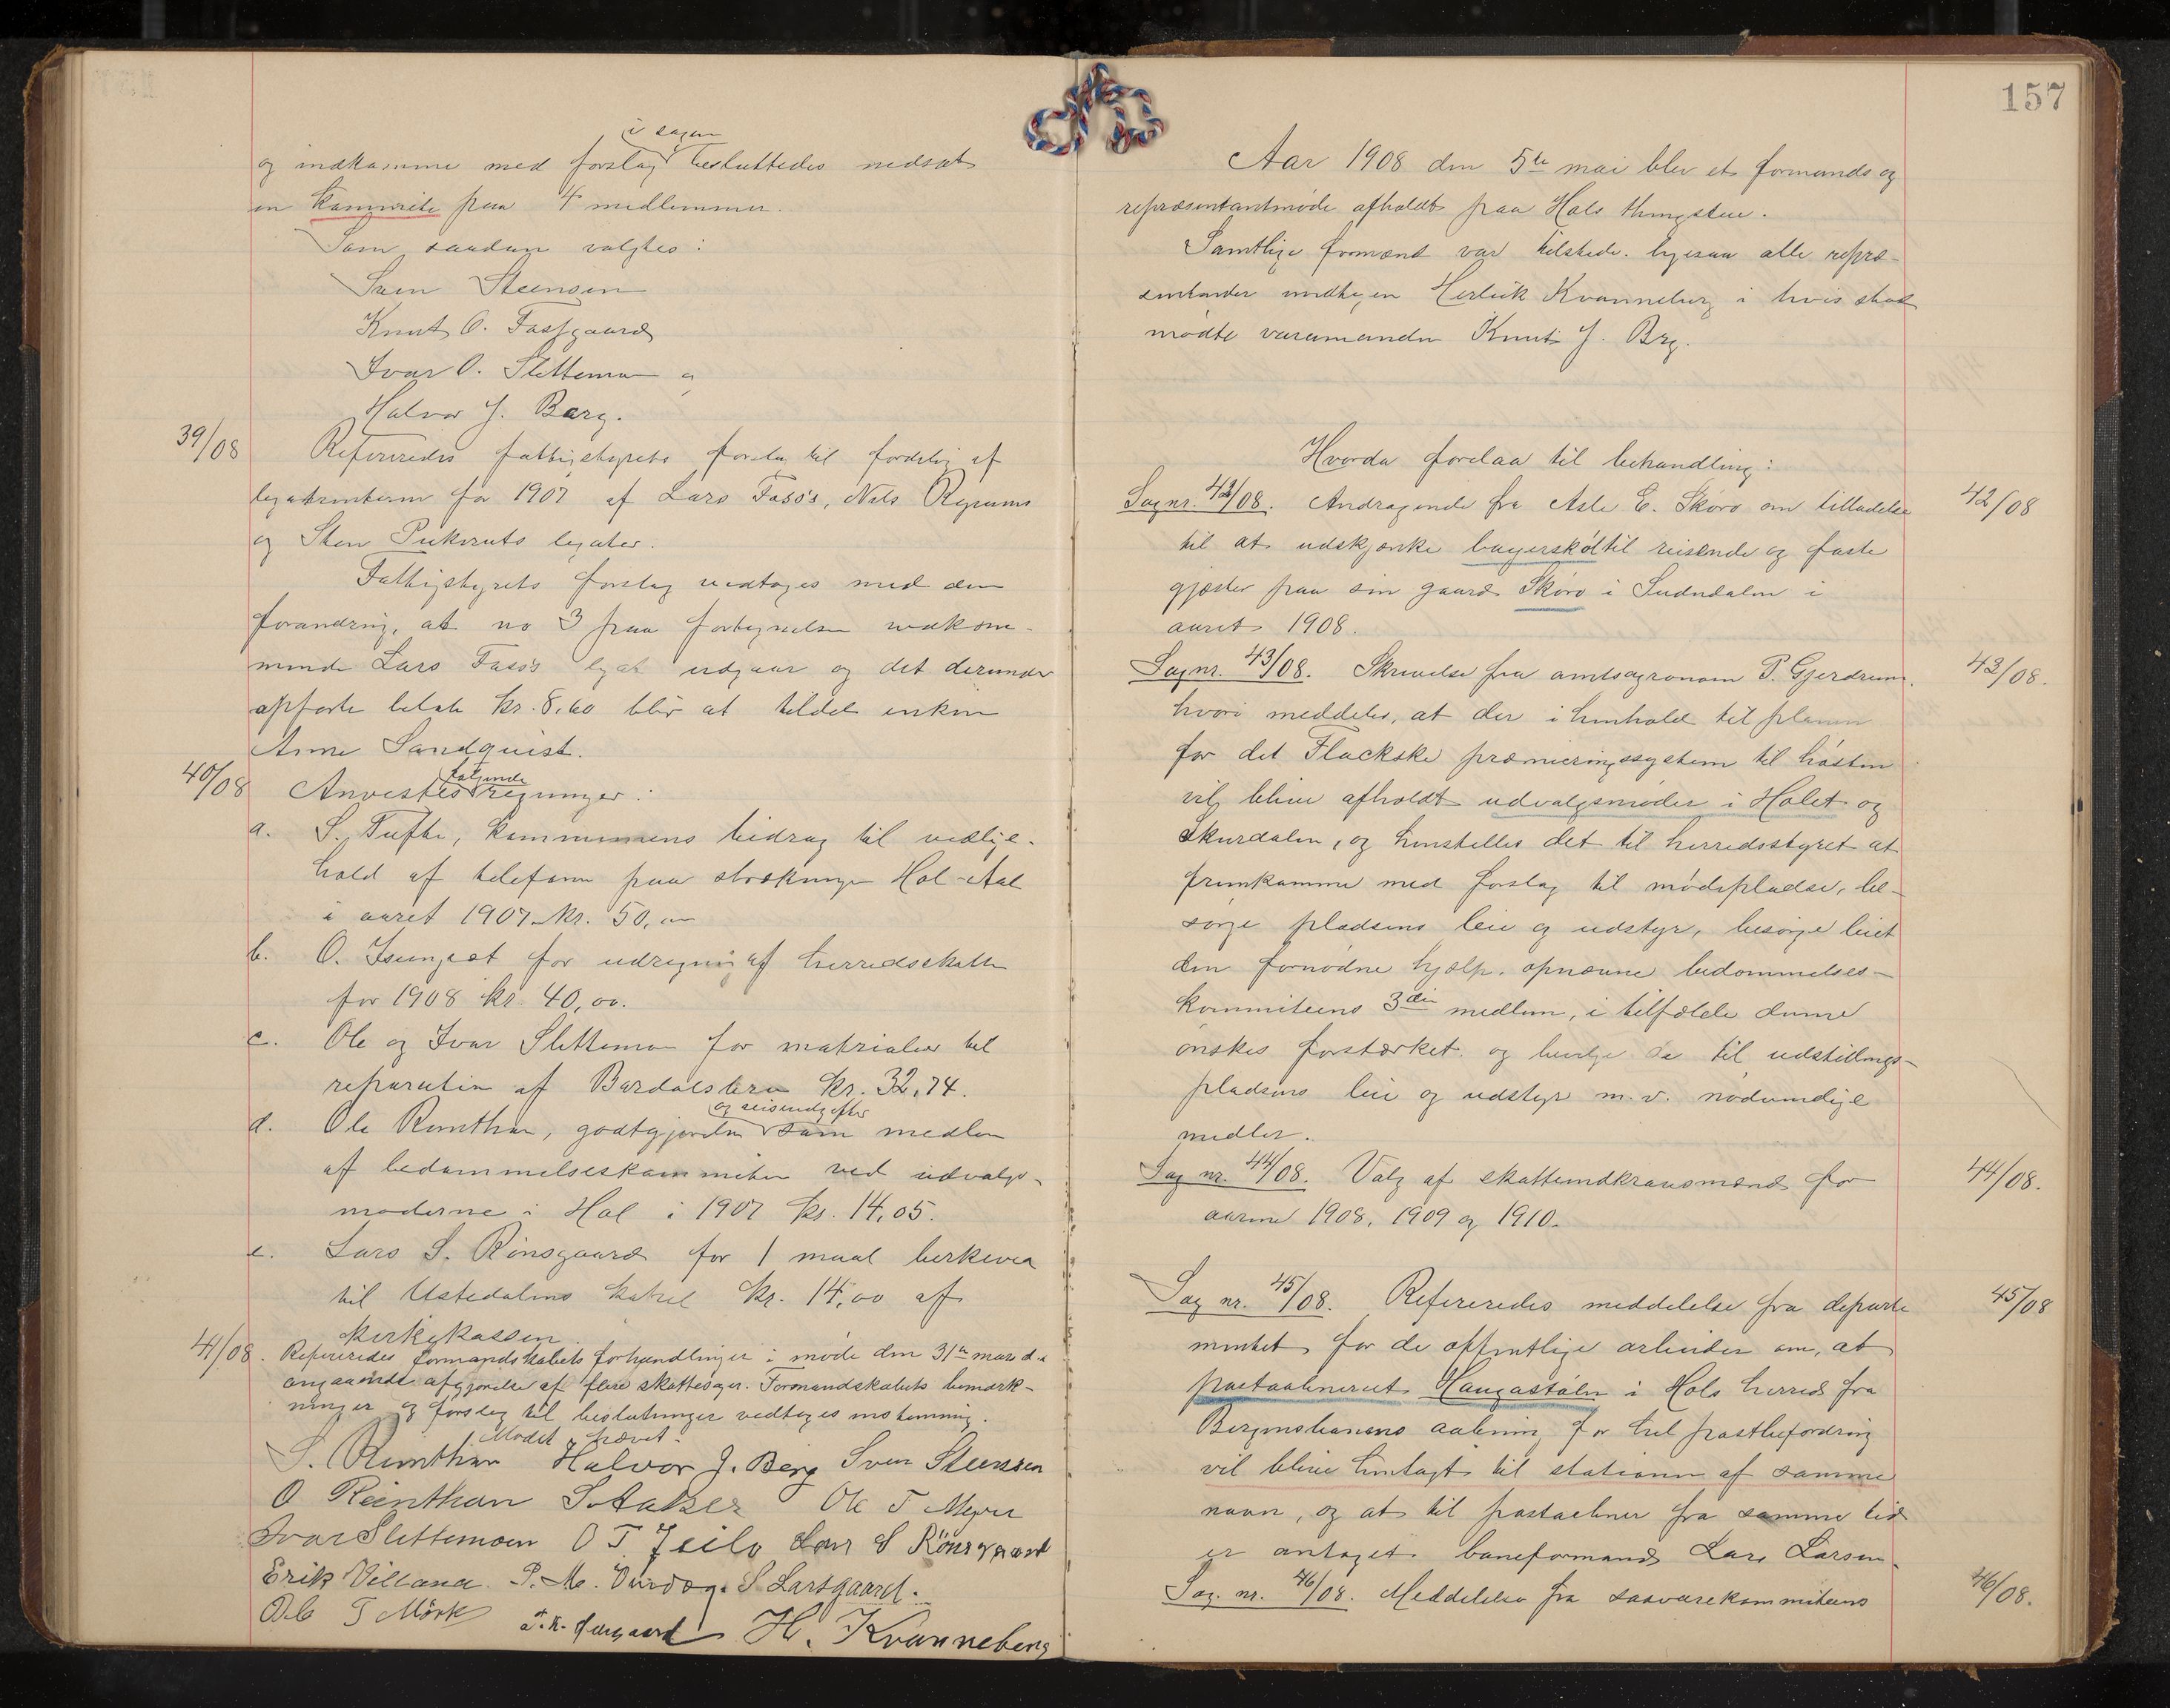 i sagen
og indkomme med forslag besluttedes nedsat
en kommite paa 4 medlemmer.
Som saadan valgtes:
Sven Steensen
Knut O.
Ivar O. Slettemoen og
Halvor J. Berg.
39/08 Refereredes fattigstyrets forslag til fordeling af
legatrenterne for 1907 af Lars Fosøs, Nils
og Sten legater.
Fattigstyrets forslag vedtoges med den
forandring, at no 3 paa fortegnelsen vedkom-
mende Lars Fosøs legat udgaar og det derunder
opførte beløb kr. 8,60 blir at tildele enken
Anne Sandquist.
følgende
40/08 Anvistes regninger:
a. S. Tufte, kommunens bidrag til vedlige-
hold af telefonen paa strækningen Hol-Aal
i aaret 1907 kr. 50,00
b. O. for udregning af herredsskatten
for 1908 kr. 40,00.
c. Ole og Ivar Slettemoen for matrialer til
reparation af Bardalsbro kr. 32,74.
og reiseudgifter
d. Ole Reinthon, godtgjørelse som medlem
af bedømmelseskommiteen ved udvalgs-
møderne i Hol i 1907 kr. 14,05.
e. Lars S. Rønsgaard for 1 maal birkeved
til Ustedalens kapel kr. 14,00 af
kirkekassen.
41/08. Refereredes formandskabets forhandlinger i møde den 31te mars d.a
angaaende afgjørelse af flere skattesager. Formandskabets bemærk-
ninger og forslag til beslutninger vedtoges enstemmig.
Mødet hævet.
S. Reinthon Halvor J. Berg Sven Steensen
O Reinthon S. Aaker Ole T Myro
Ivar Slettemoen O T Geilo Lars S Rönsgaard
Erik Villand. P. M. S Larsgaard.
Ole T Mörk H. Kvanneberg
157
Aar 1908 den 5te mai blev et formands og
repræsentantmøde afholdt paa Hols thingstue.
Samtlige formænd var tilstede. ligesaa alle repræ-
sentanter undtagen Herleik Kvanneberg i hvis sted
mødte varamanden Knut J. Berg.
Hvorda forelaa til behandling:
Sag nr. 42/08. Andragende fra Asle E. Skøro om tilladelse 42/08
til at udskjænke bayerskøl til reisende og faste
gjæster paa sin gaard Skøro i Sudndalen i
aaret 1908.
Sag nr. 43/08. Skrivelse fra amtsagronom P. Gjerdrum, 43/08.
hvori meddeles, at der i henhold til planen
for det Flackske præmieringssystem til høsten
vil blive afholdt udvalgsmøder i Holet og
Skurdalen, og henstilles det til herredsstyret at
fremkomme med forslag til mødepladse, be-
sørge pladsens leie og udstyr, besørge leiet
den fornødne hjælp, opnævne bedømmelses-
kommiteens 3die medlem, i tilfælde denne
ønskes forstærket. og bevilge de til udstillings-
pladsens leie og udstyr m.v. nødvendige
midler.
Sag nr. 44/08. Valg af skatteindkrævsmænd for 44/08.
aarene 1908, 1909 og 1910.
Sag nr. 45/08. Refereredes meddelelse fra departe 45/08
mentet for de offentlige arbeider om, at
postaabneriet Haugastølen i Hols herred fra
Bergensbanens aabning for hel postbefordring
vil blive henlagt til stationen af samme
navn, og at til postaabner fra samme tid
er antaget baneformand Lars Larsen.
Sag. nr. 46/08. Meddelelse fra kommiteens 46/08.